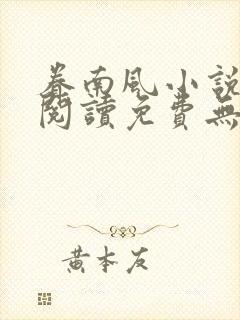 眷南風小說
閱讀免費無
黃本友